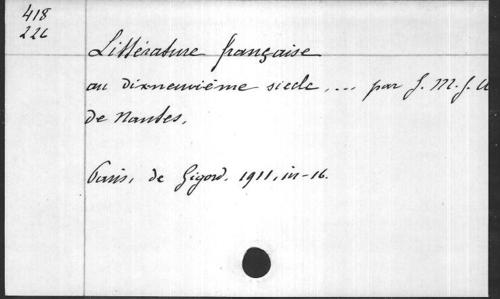 418
226
Littérature française
au dixneuvième siècle, ... par J. M. J. A
de Nantes.
Paris, de Gigord. 1911, in-16.